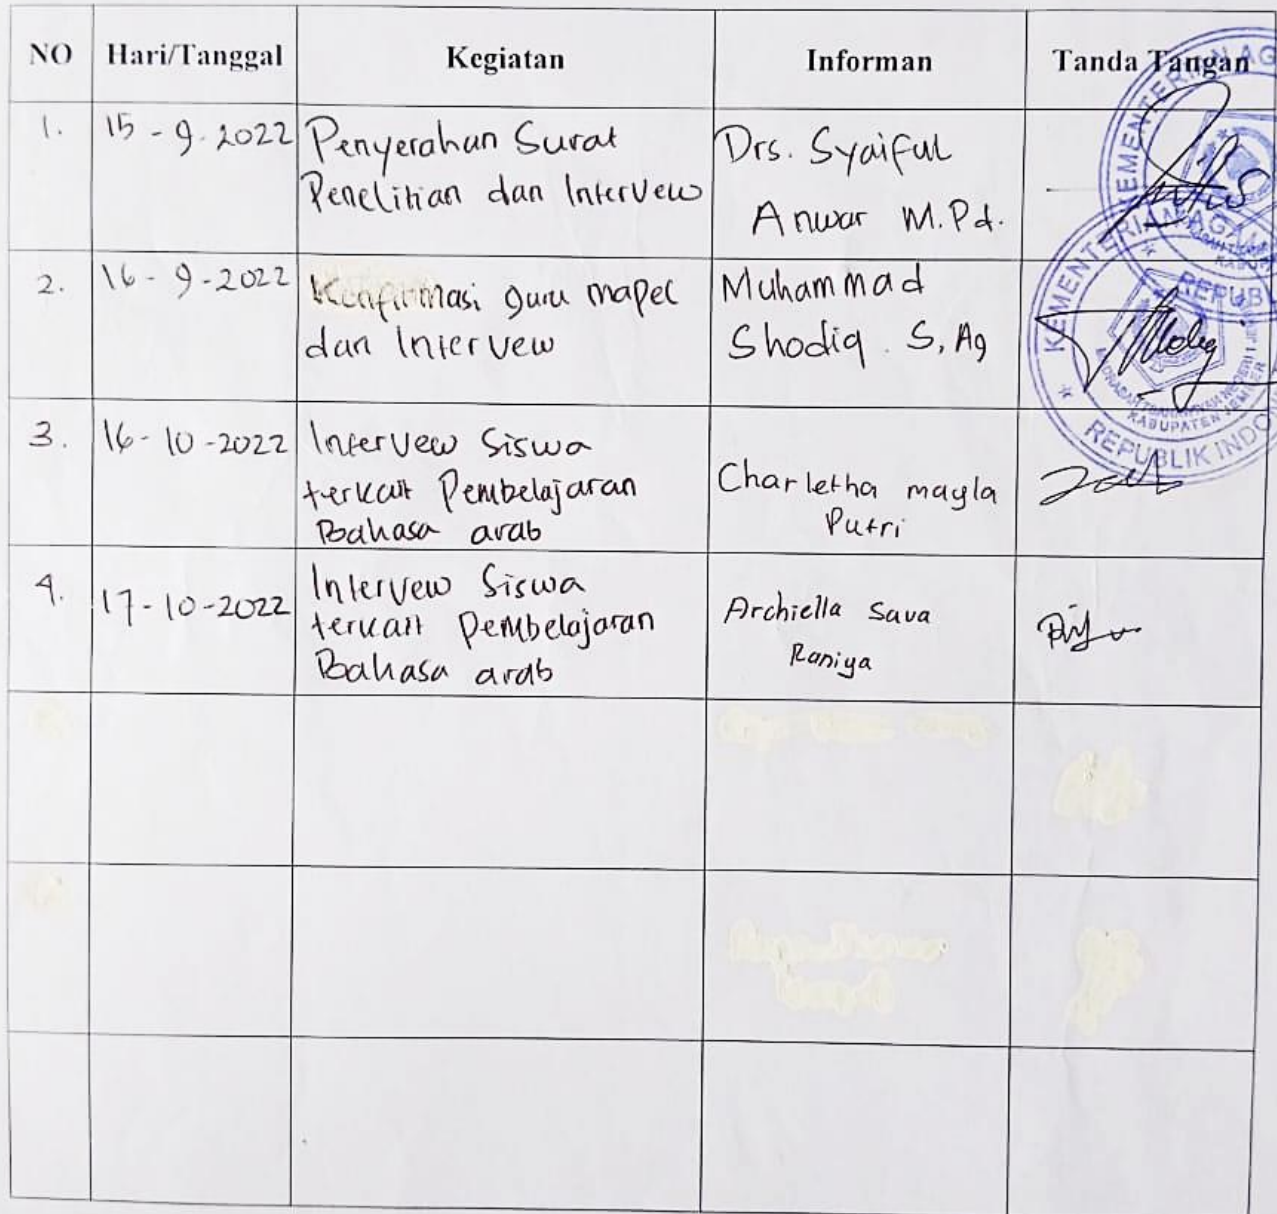 NO Hari/Tanggal Kegiatan Informan Tanda Tangan
1. 15 - 9 - 2022 Penyerahan Surat
Penelitian dan Intervew
Drs. Syaiful
Anwar M.Pd.
2. 16 - 9 - 2022 Konfirmasi guru mapel
dan Intervew
Muhammad
Shodiq . S, Ag
3. 16 - 10 - 2022 Intervew Siswa
terkait Pembelajaran
Bahasa arab
Charletha mayla
Putri
4. 17 - 10 - 2022 Intervew Siswa
terkait Pembelajaran
Bahasa arab
Archiella Sava
Raniya
KEMENTERIAN AG
KEMENTERIAN AGAMA
REPUB
MADRASAH TSANAWIYAH NEGERI 1 JEMBER
KABUPATEN JEMBER
REPUBLIK INDO